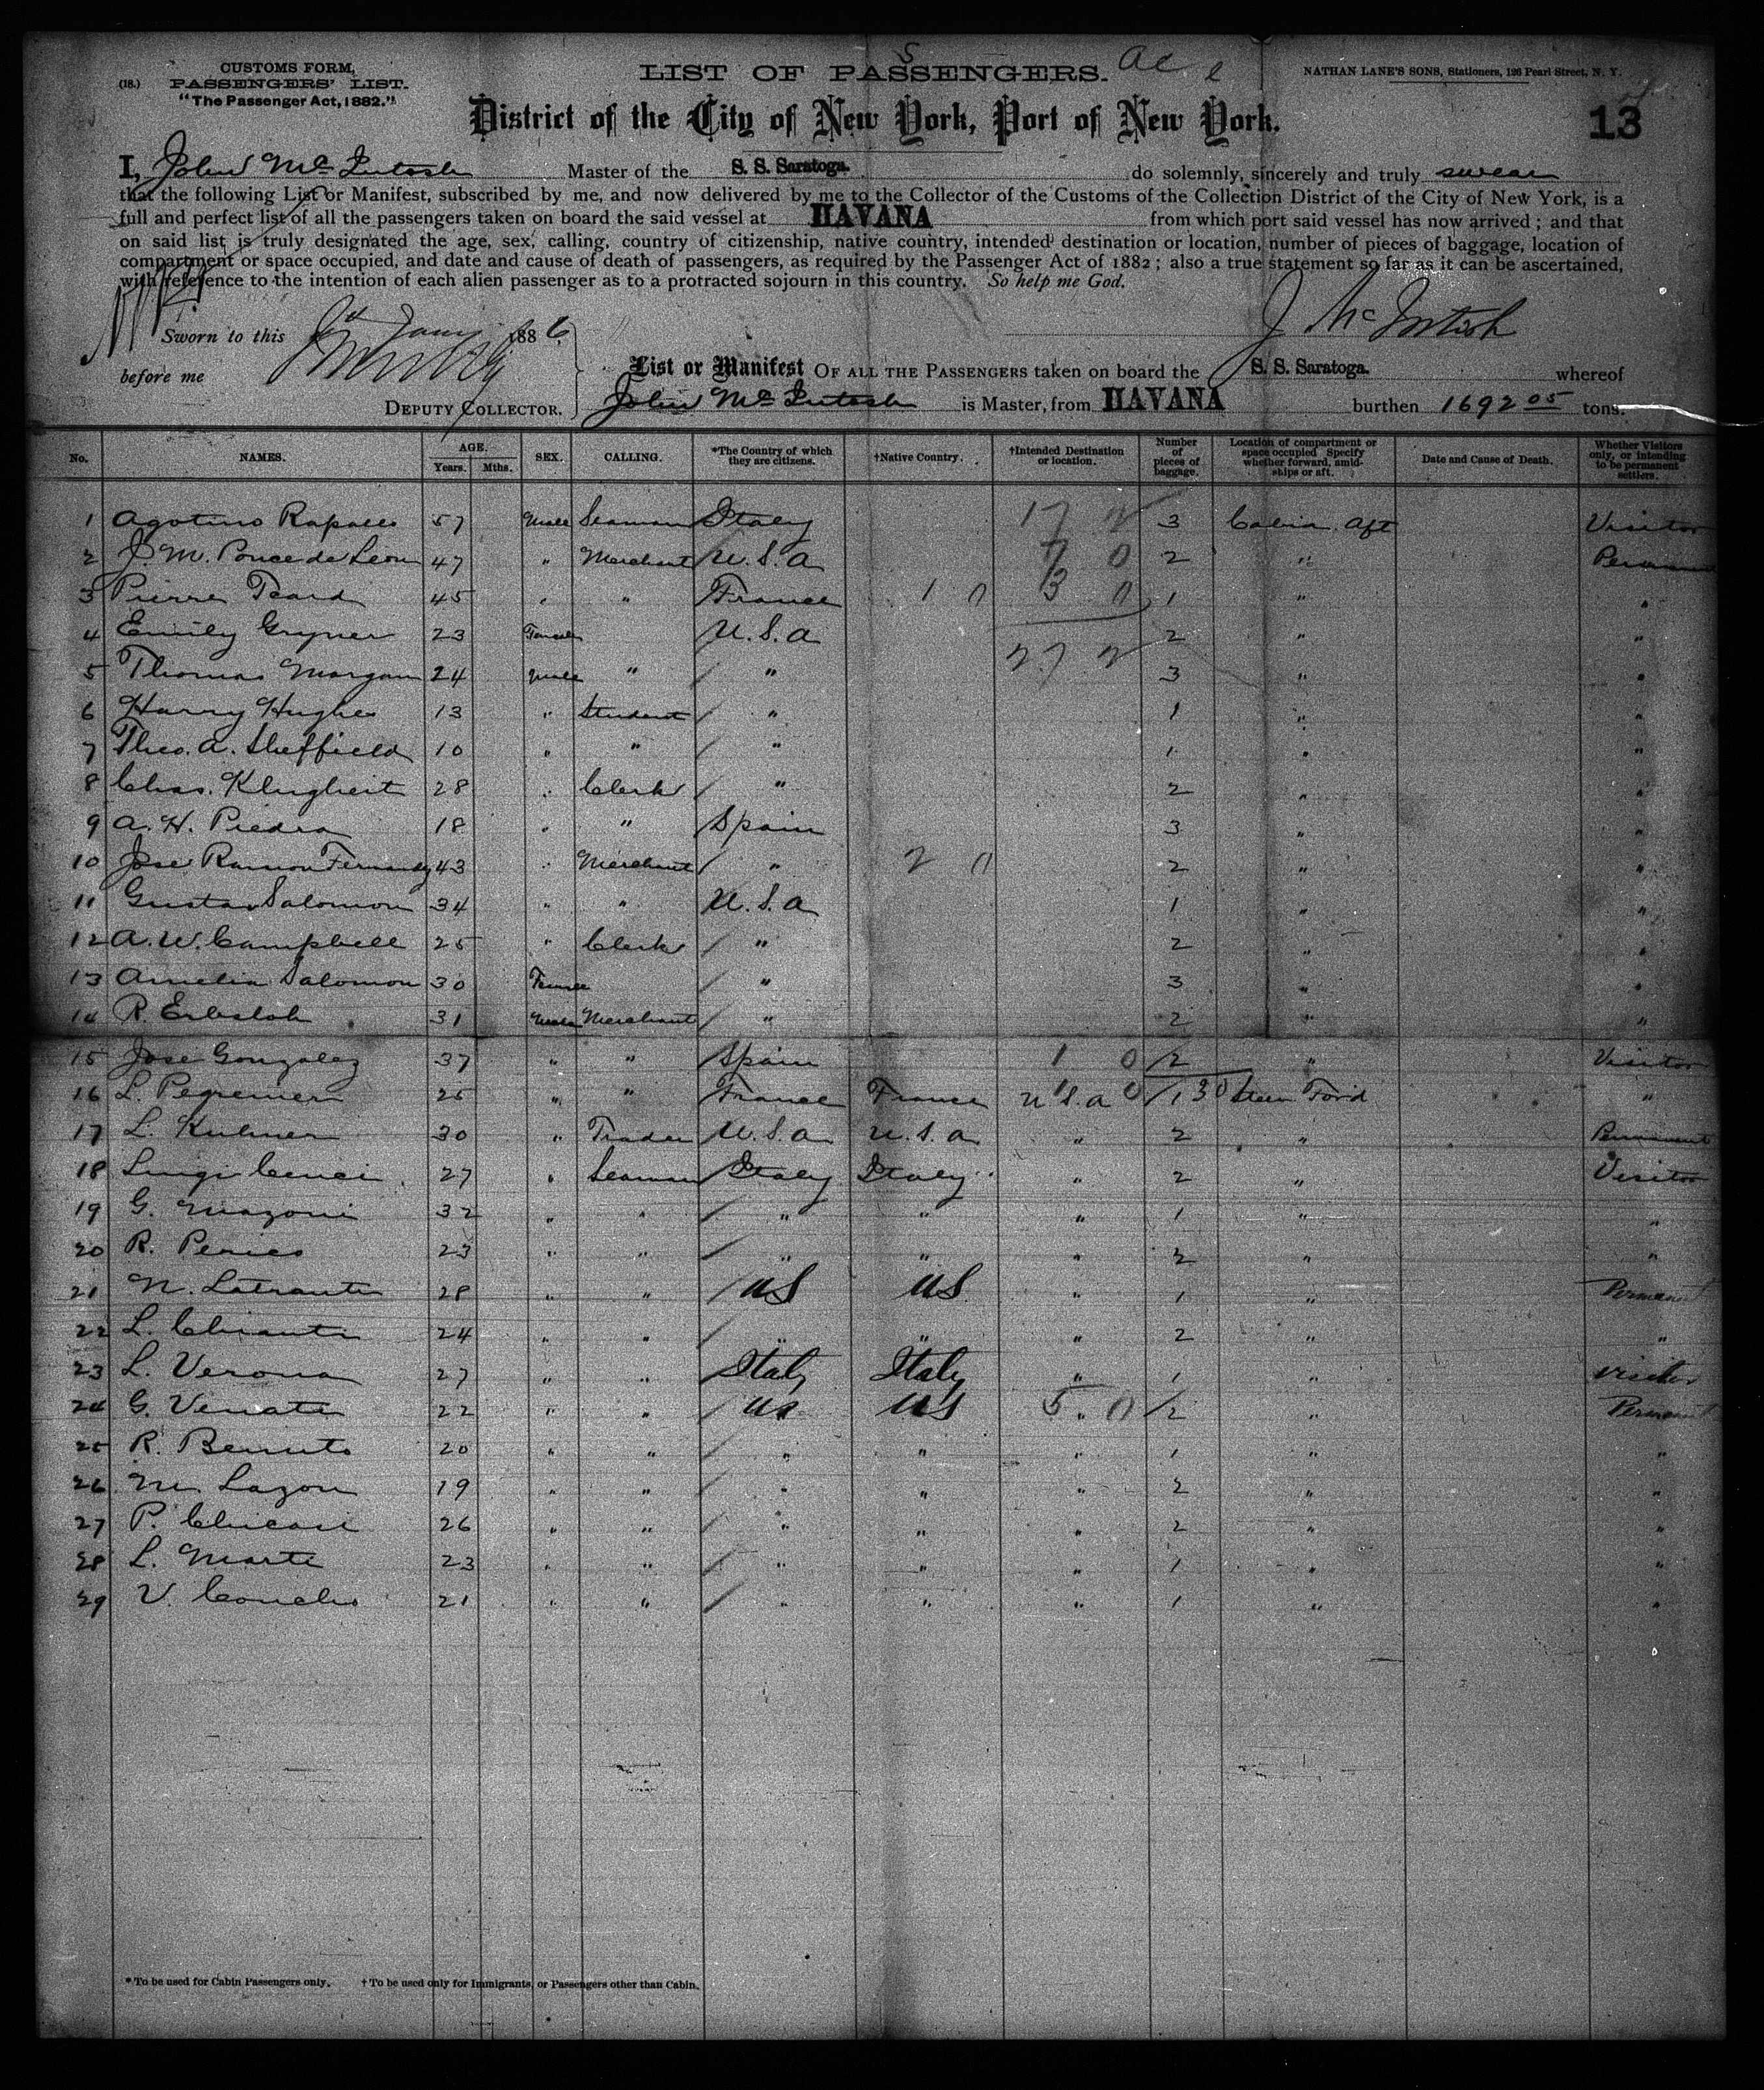 CUSTOMS FORM,
(18.) PASSENGERS' LIST.
"The Passenger Act, 1882."
LIST OF PASSENGERS.
NATHAN LANE'S SONS, Stationers, 126 Pearl Street, N. Y.
District of the City of New York, Port of New York.
13
I, John McIntosh Master of the S. S. Saratoga. do solemnly, sincerely and truly swear
that the following List or Manifest, subscribed by me, and now delivered by me to the Collector of the Customs of the Collection District of the City of New York, is a
full and perfect list of all the passengers taken on board the said vessel at HAVANA from which port said vessel has now arrived; and that
on said list is truly designated the age, sex, calling, country of citizenship, native country, intended destination or location, number of pieces of baggage, location of
compartment or space occupied, and date and cause of death of passengers, as required by the Passenger Act of 1882; also a true statement so far as it can be ascertained,
with reference to the intention of each alien passenger as to a protracted sojourn in this country. So help me God.
J McIntosh
Sworn to this Jany 1886
before me
DEPUTY COLLECTOR.
List or Manifest OF ALL THE PASSENGERS taken on board the S. S. Saratoga. whereof
John McIntosh is Master, from HAVANA burthen 1692 05 tons.
No. NAMES. AGE. Years. Mths. SEX. CALLING. *The Country of which they are citizens. †Native Country. †Intended Destination or location. Number of pieces of baggage. Location of compartment or space occupied Specify whether forward, amidships or aft. Date and Cause of Death. Whether Visitors only, or intending to be permanent settlers.
1 Agotino Rapallo 57 Male Seaman Italy 3 Cabin Aft Visitor
2 J. M. Ponce de Leon 47 " Merchant U.S.A 2 " Permanent
3 Pierre Teard 45 " " France 1 " "
4 Emily Gryner 23 Female U.S.A 2 " "
5 Thomas Morgan 24 Male " " 3 " "
6 Harry Hughes 13 " Student " 1 " "
7 Theo. A. Sheffield 10 " " " 1 " "
8 Chas. Klugheit 28 " Clerk " 2 " "
9 A. H. Piedra 18 " " Spain 3 " "
10 Jose Ramon Fernandez 43 " Merchant " 2 " "
11 Gustav Salomon 34 " " U.S.A 1 " "
12 A. W. Campbell 25 " Clerk " 2 " "
13 Amelia Salomon 30 Female " 3 " "
14 R. Erbsloh 31 Male Merchant " 2 " "
15 Jose Gonzalez 37 " " Spain 2 " Visitor
16 L. Pegremen 25 " " France France U.S.A 1 Steer Forid "
17 L. Kulmen 30 " Trader U.S.A U.S.A " 2 " Permanent
18 Luigi Cenci 27 " Seaman Italy Italy " 2 " Visitor
19 G. Mazoni 32 " " " " " 1 " "
20 R. Perico 23 " " " " " 2 " "
21 N. Latrante 28 " " US US " 1 " Permanent
22 L. Chiante 24 " " " " " 2 " "
23 L. Verona 27 " " Italy Italy " 1 " Visitor
24 G. Venate 22 " " US US " 2 " Permanent
25 R. Benuto 20 " " " " " 1 " "
26 M. Lazon 19 " " " " " 2 " "
27 P. Chicasi 26 " " " " " 2 " "
28 L. Marte 23 " " " " " 1 " "
29 V. Concho 21 " " " " " 1 " "
*To be used for Cabin Passengers only. †To be used only for Immigrants, or Passengers other than Cabin.